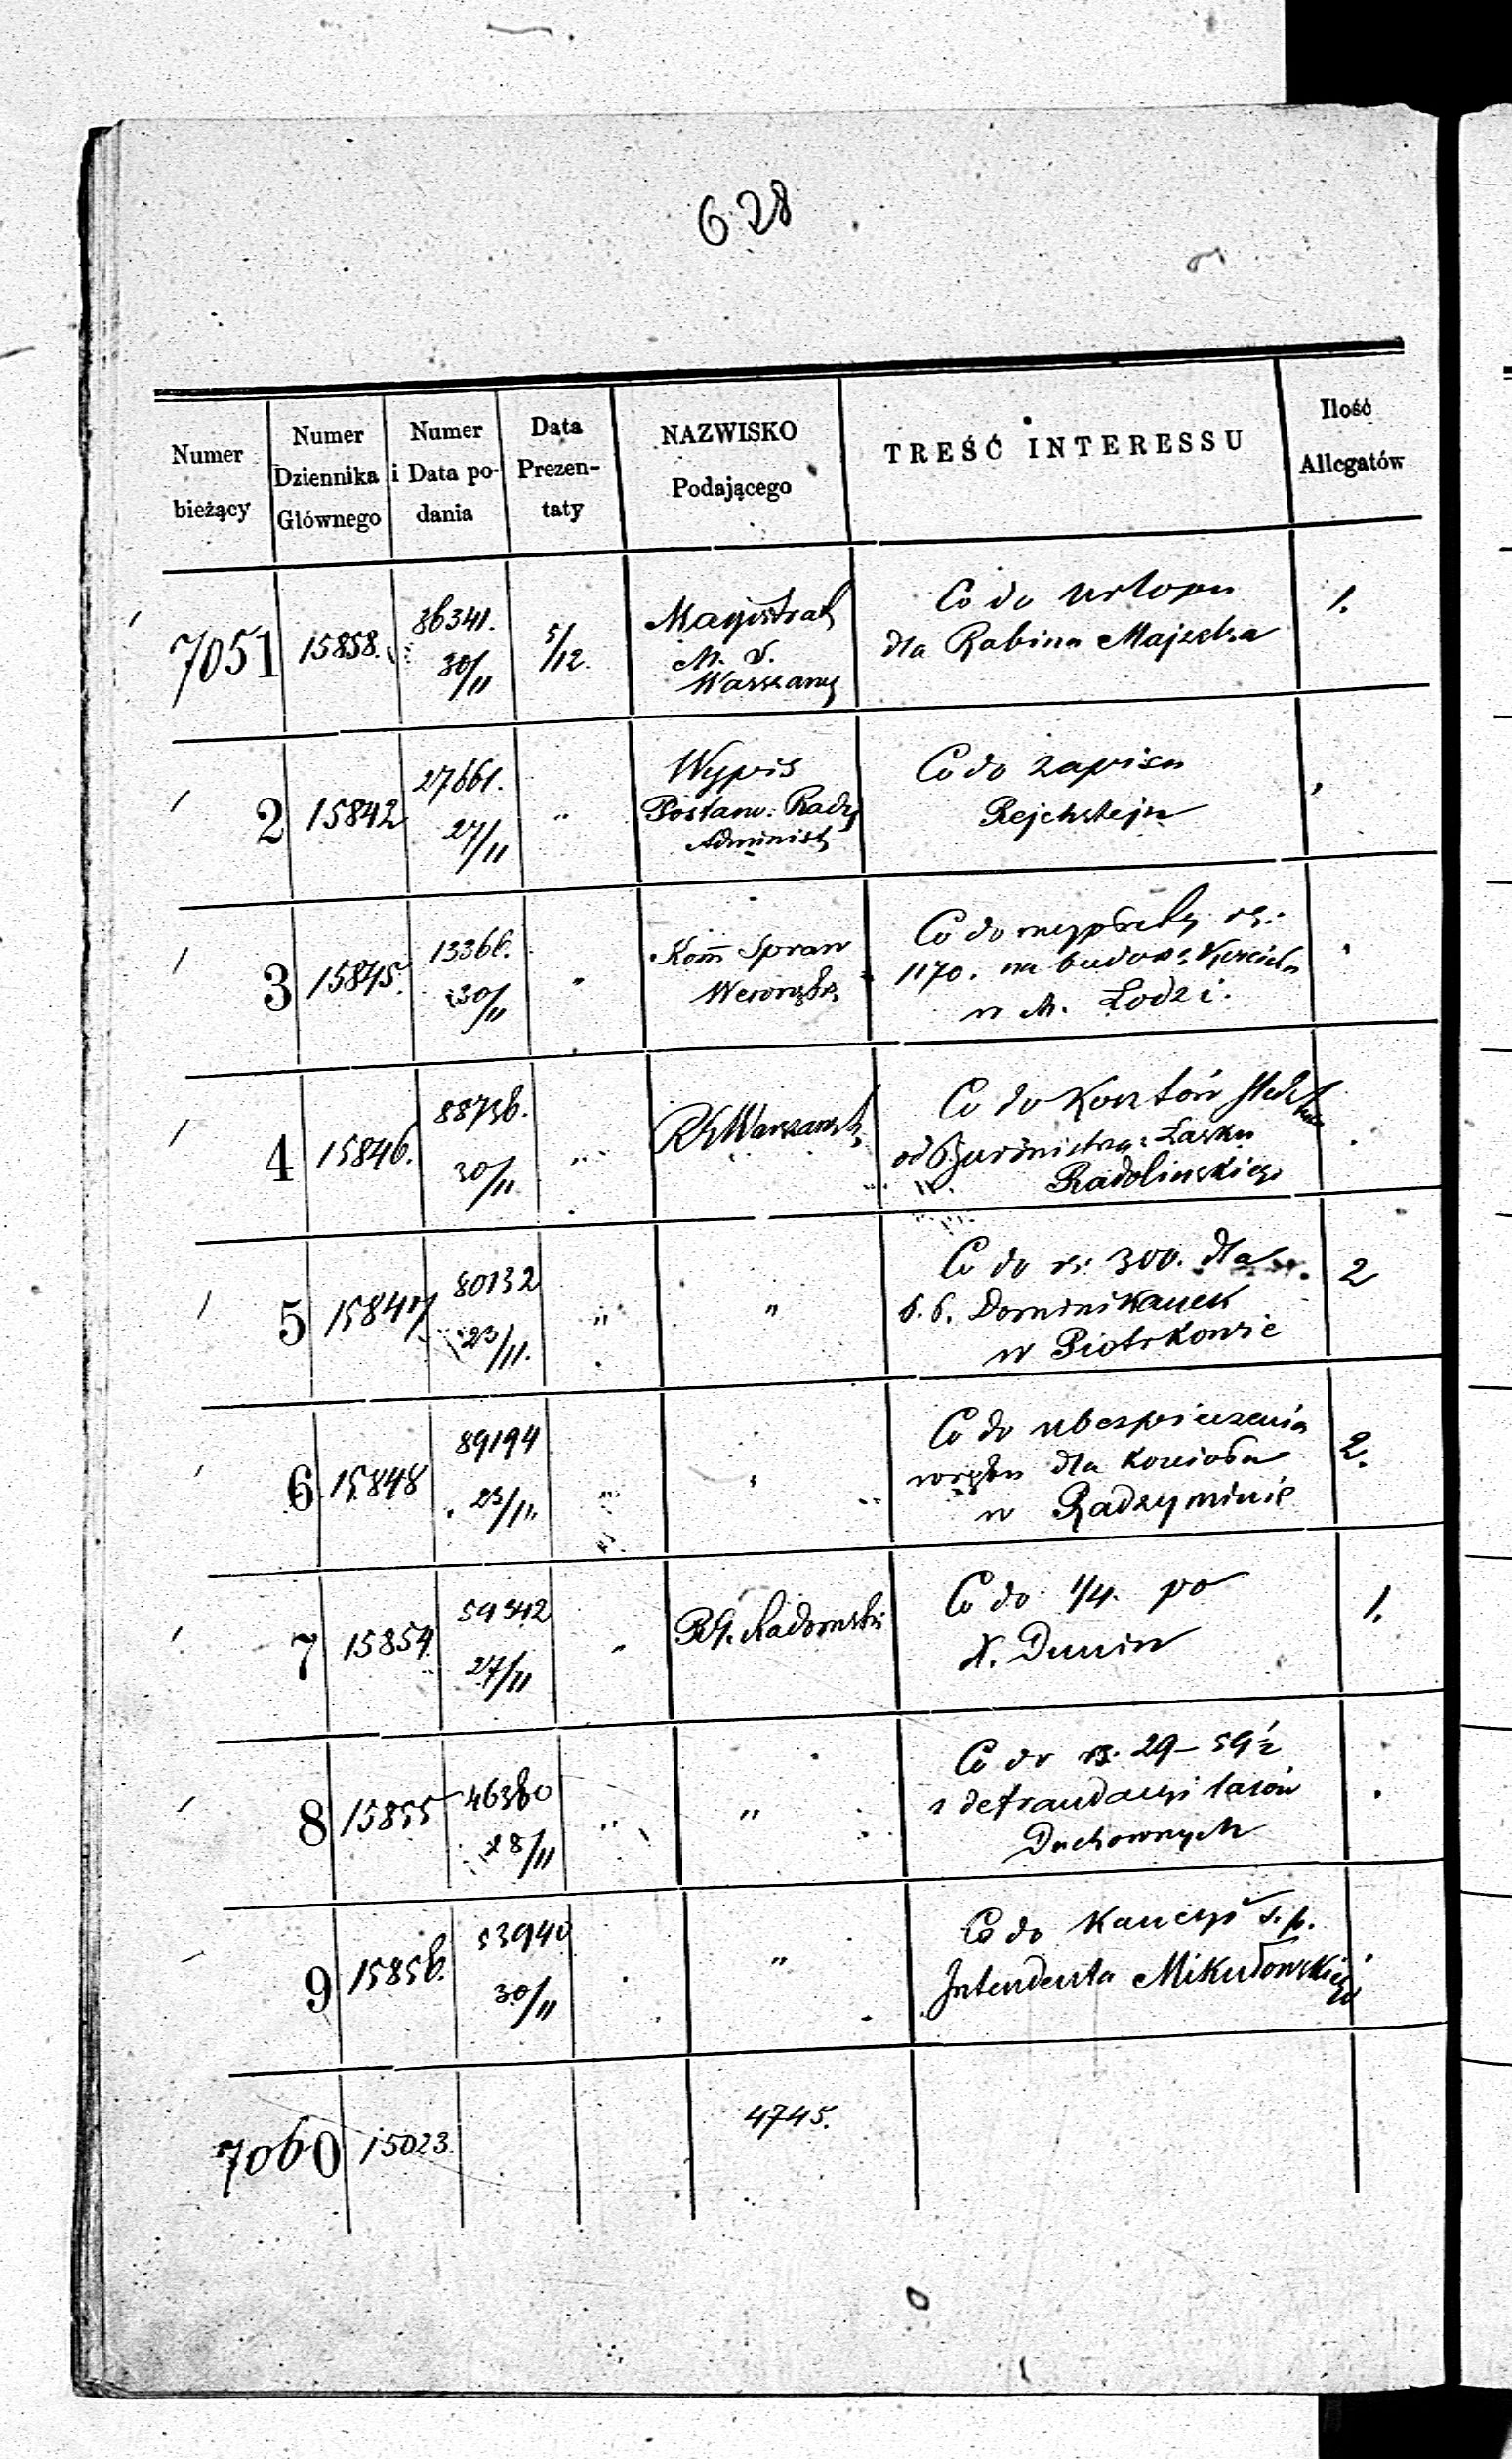 628
Numer bieżący
Numer Dziennika Głównego
Numer i Data podania
Data Prezentaty
NAZWISKO Podającego
TREŚĆ INTERESSU
Ilość Allegatów
7051
15858.
36341.
30/11
5/12.
Magistrat
M. S.
Warszawy
Co do Urlopu
dla Rabina Majzelsa
1.
2
15842
27661.
27/11
"
Wypis
Postanw: Rady
Administ
Co do zapisu
Rejchstejn
3
15845.
13366.
30/11
"
Kom Spraw
Wewnętz
Co do wypłaty rs:
1170. na budowę Kościoła
w M. Łodzi.
4
15846.
88736.
30/11
"
RG Warszawsk
Co do Kosztów
od Burmistrza: Łasku
Radolinskiego
5
15847
80132
23/11.
"
"
Co do rs: 300. dla
6. 6. Dominikanek
w Piotrkowie
2
6
15848
89194
23/11.
"
"
Co do ubezpieczenia
dla Kościoła
w Radzyminie
2.
7
15854.
59342
27/11
"
RG. Radomski
Co do 1/4. po
X. Dunin
1.
8
15855
46380
28/11
"
"
Co do rs. 29–59½
z defraudacyi lasów
Duchownych
9
15856.
53940
30/11
"
Co do Kaucyi ś. p.
Intendenta Mikułowskiego
7060
15023.
4745.